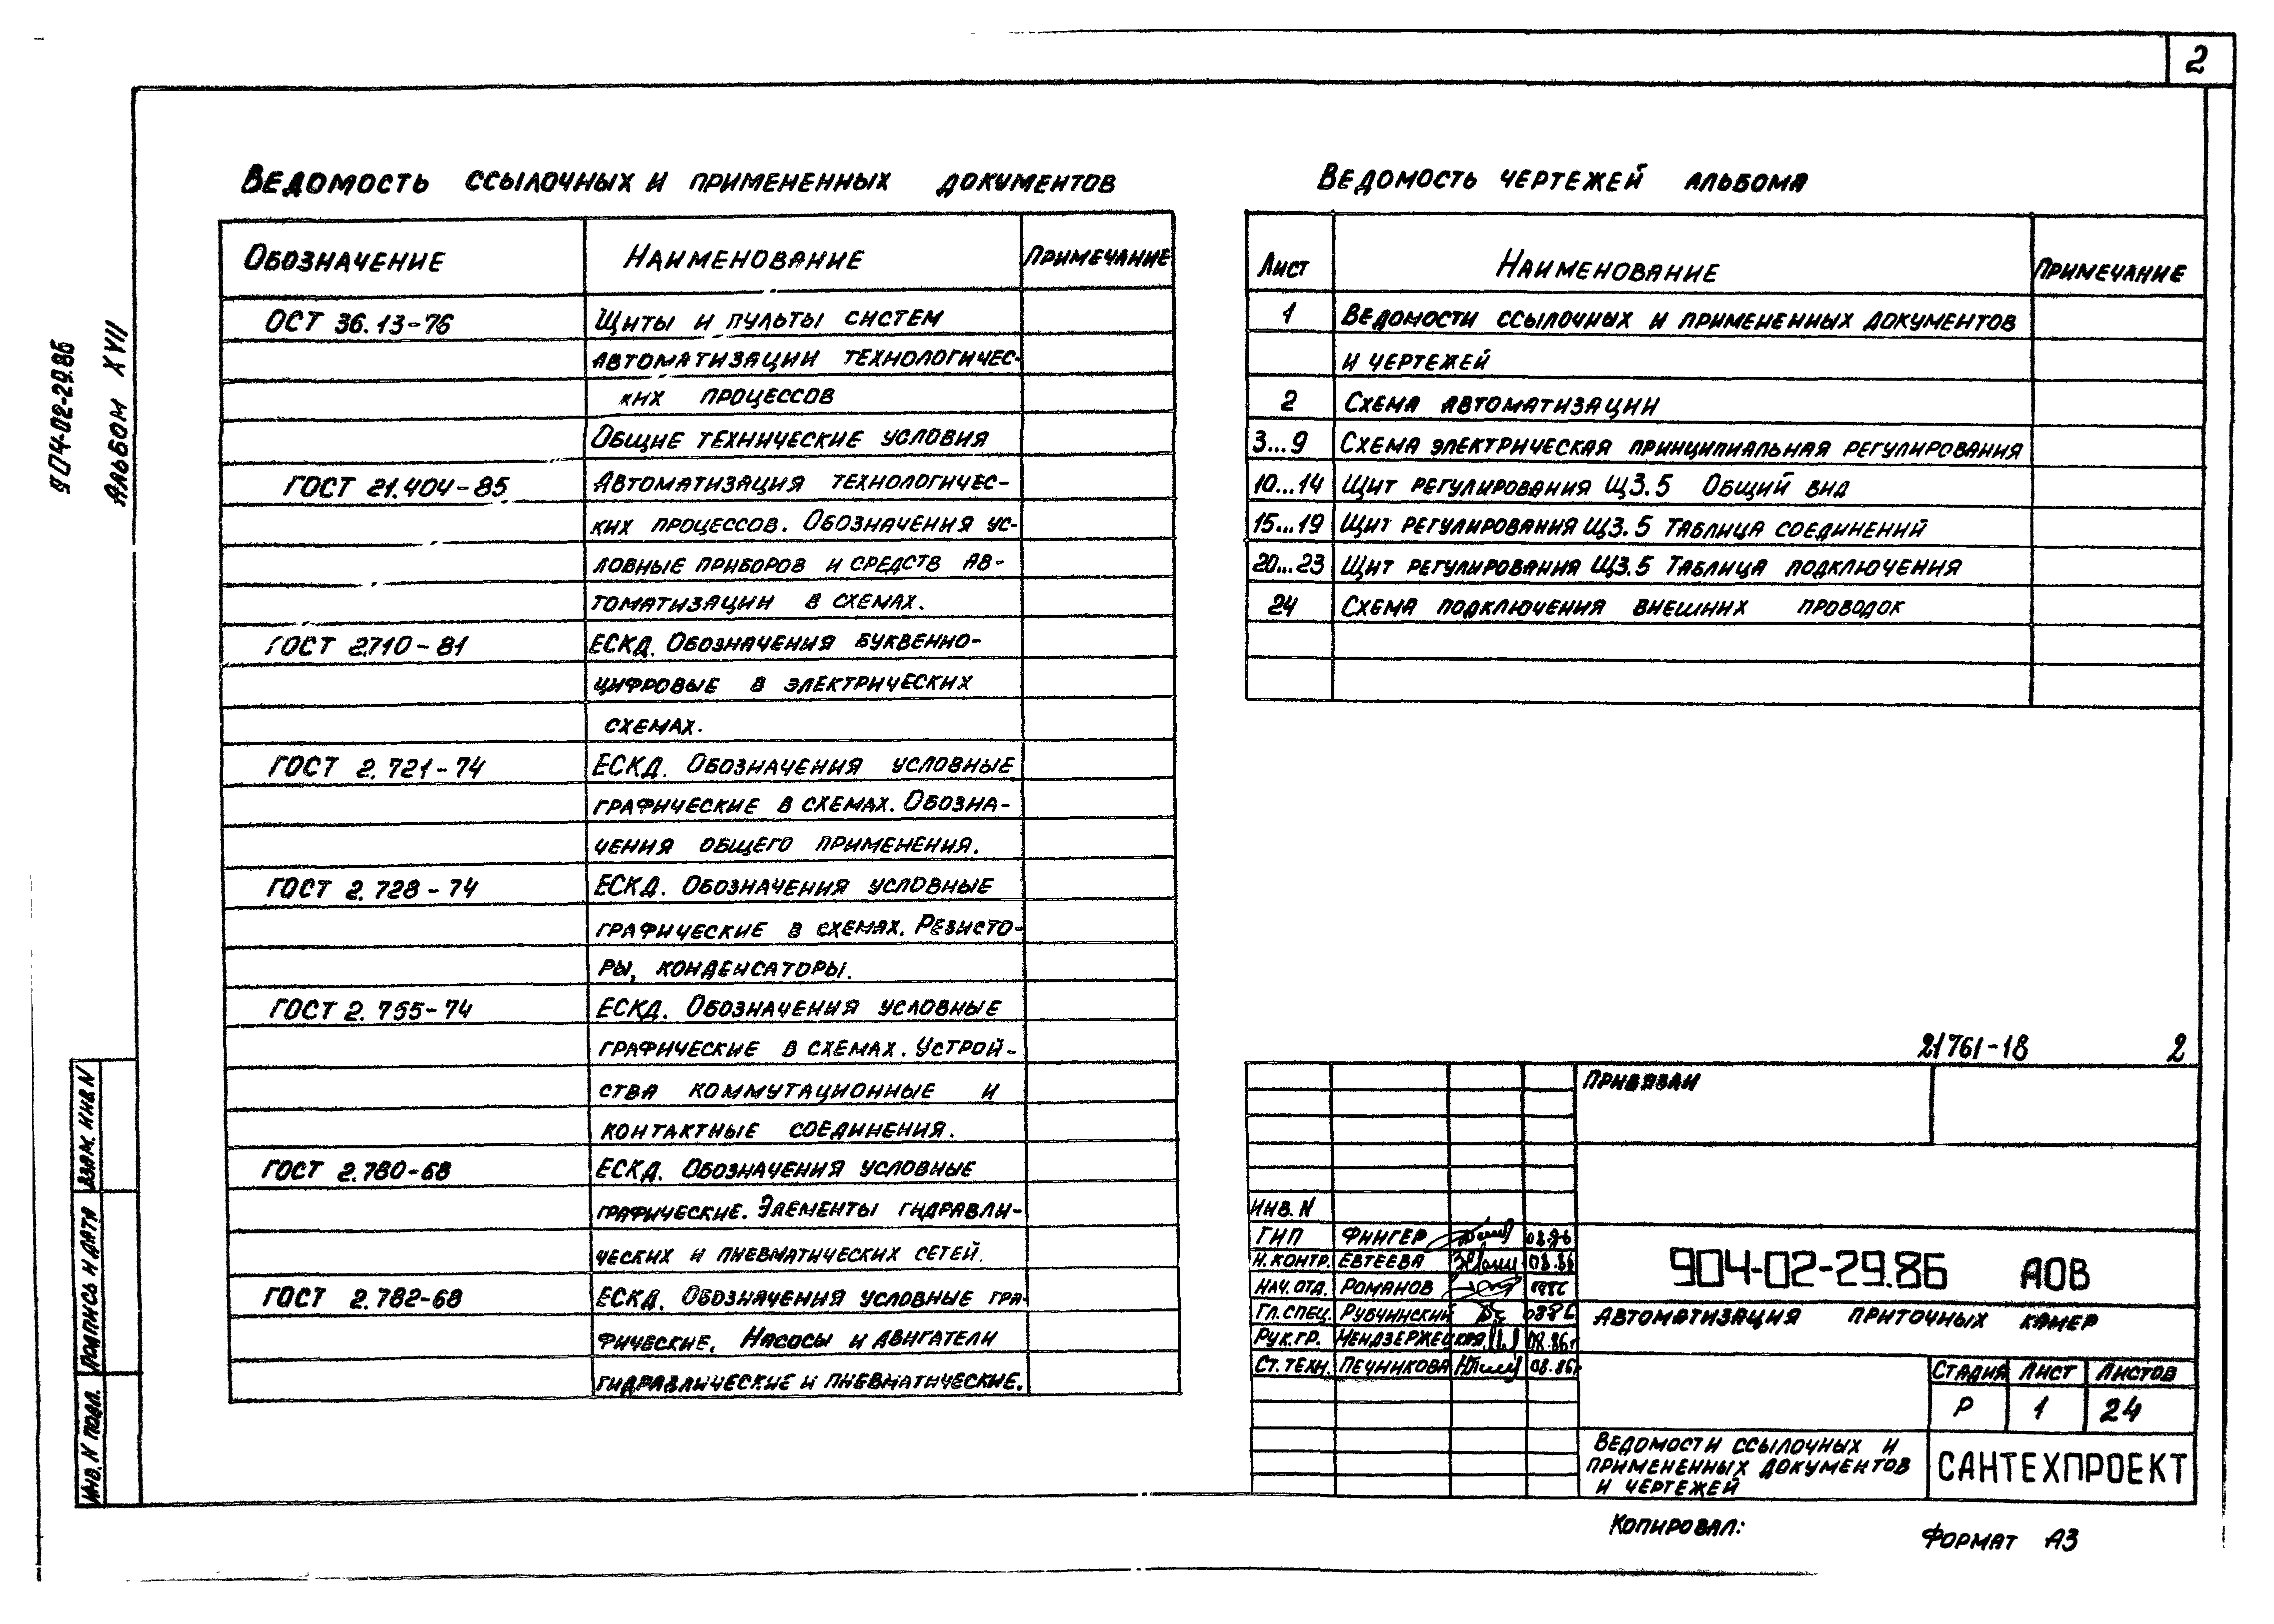 2
904-02-29.86
Альбом XVII
Ведомость ссылочных и примененных документов
Обозначение Наименование Примечание
ОСТ 36.13-76 Щиты и пульты систем
автоматизации технологичес-
ких процессов
Общие технические условия
ГОСТ 21.404-85 Автоматизация технологичес-
ких процессов. Обозначения ус-
ловные приборов и средств ав-
томатизации в схемах.
ГОСТ 2.710-81 ЕСКД. Обозначения буквенно-
цифровые в электрических
схемах.
ГОСТ 2.721-74 ЕСКД. Обозначения условные
графические в схемах. Обозна-
чения общего применения.
ГОСТ 2.728-74 ЕСКД. Обозначения условные
графические в схемах. Резисто-
ры, конденсаторы.
ГОСТ 2.755-74 ЕСКД. Обозначения условные
графические в схемах. Устрой-
ства коммутационные и
контактные соединения.
ГОСТ 2.780-68 ЕСКД. Обозначения условные
графические. Элементы гидравли-
ческих и пневматических сетей.
ГОСТ 2.782-68 ЕСКД. Обозначения условные гра-
фические. Насосы и двигатели
гидравлические и пневматические.
Ведомость чертежей альбома
Лист Наименование Примечание
1 Ведомости ссылочных и примененных документов
и чертежей
2 Схема автоматизации
3...9 Схема электрическая принципиальная регулирования
10...14 Щит регулирования Щ3.5 Общий вид
15...19 Щит регулирования Щ3.5 Таблица соединений
20...23 Щит регулирования Щ3.5 Таблица подключения
24 Схема подключения внешних проводок
21761-18 2
Привязан
Инв. N
ГИП Фингер 08.86
Н.контр. Евтеева 08.86
Нач.отд. Романов
Гл.спец. Рубчинский 0886
Рук.гр. Мендзержецкая 08.86г
Ст.техн. Печникова 08.86г
904-02-29.86 АОВ
Автоматизация приточных камер
Стадия Лист Листов
Р 1 24
Ведомости ссылочных и
примененных документов
и чертежей
САНТЕХПРОЕКТ
Копировал: Формат А3
Взам. инв N
Подпись и дата
Инв. N подл.